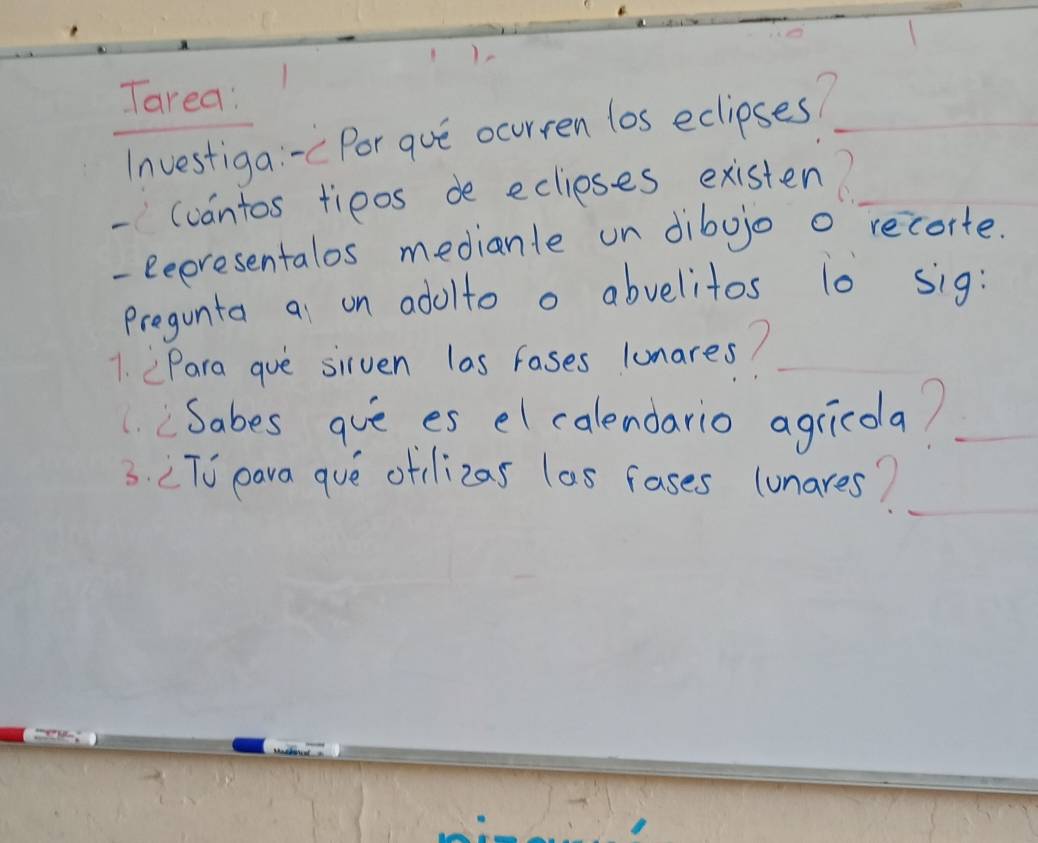 Tarea:
Investiga:-¿Por qué ocurren los eclipses?
-¿Cuántos tipos de eclipses existen?
-Representalos mediante un dibujo o recorte.
Pregunta a un adulto o abuelitos lo sig:
1. ¿Para qué sirven las fases lunares?
¿Sabes qué es el calendario agrícola?
3. ¿Tú para qué utilizas las fases lunares?